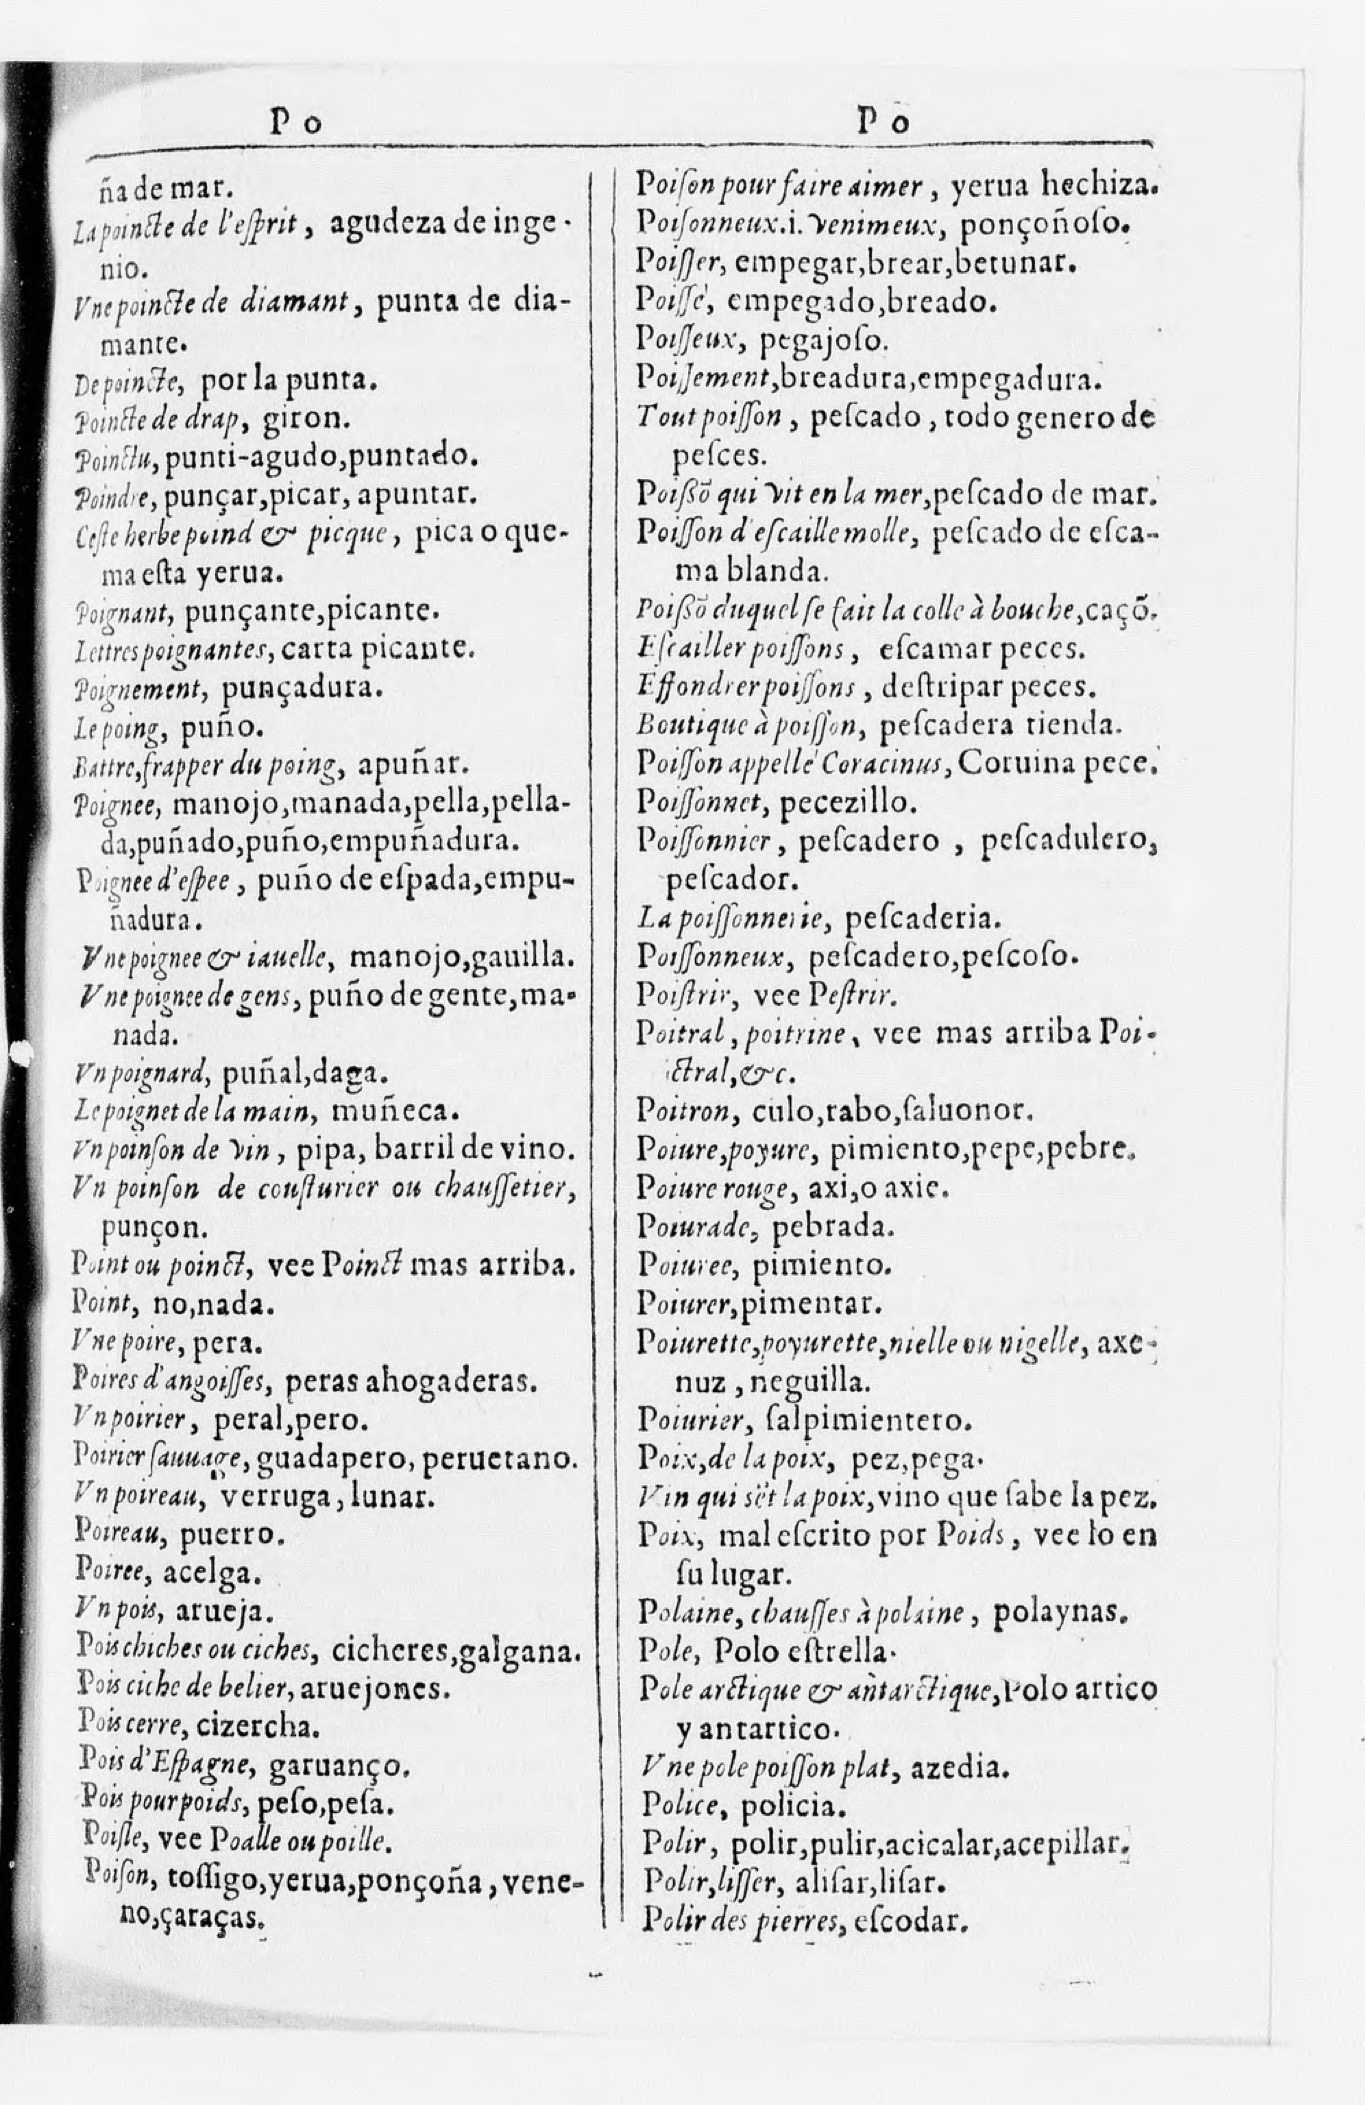 Po
ña de mar.
La poincte de l'eſprit, agudeza de inge-
nio.
Vne poincte de diamant, punta de dia-
mante.
De poincte, por la punta.
Poincte de drap, giron.
Poinctu, punti-agudo,puntado.
Poindre, punçar,picar, apuntar.
Ceſte herbe poind & picque, pica o que-
ma eſta yerua.
Poignant, punçante,picante.
Lettres poignantes, carta picante.
Poignement, punçadura.
Le poing, puño.
Battre,frapper du poing, apuñar.
Poignee, manojo,manada,pella,pella-
da,puñado,puño,empuñadura.
Poignee d'eſpee, puño de eſpada,empu-
ñadura.
Vne poignee & iauelle, manojo,gauilla.
Vne poignee de gens, puño de gente,ma-
nada.
Vn poignard, puñal,daga.
Le poignet de la main, muñeca.
Vn poinſon de vin, pipa, barril de vino.
Vn poinſon de couſturier ou chauſſetier,
punçon.
Point ou poinct, vee Poinct mas arriba.
Point, no,nada.
Vne poire, pera.
Poires d'angoiſſes, peras ahogaderas.
Vn poirier, peral,pero.
Poirier ſauuage, guadapero, peruetano.
Vn poireau, verruga, lunar.
Poireau, puerro.
Poiree, acelga.
Vn pois, arueja.
Pois chiches ou ciches, cicheres,galgana.
Pois ciche de belier, aruejones.
Pois cerre, cizercha.
Pois d'Eſpagne, garuanço.
Pois pour poids, peſo,peſa.
Poiſle, vee Poalle ou poille.
Poiſon, toſſigo,yerua,ponçoña, vene-
no,çaraças.
Po
Poiſon pour faire aimer, yerua hechiza.
Poiſonneux.i. venimeux, ponçoñoſo.
Poiſſer, empegar,brear,betunar.
Poiſſé, empegado,breado.
Poiſſeux, pegajoſo.
Poiſſement,breadura,empegadura.
Tout poiſſon, peſcado, todo genero de
peſces.
Poißõ qui vit en la mer,peſcado de mar.
Poiſſon d'eſcaille molle, peſcado de eſca-
ma blanda.
Poißõ duquel ſe fait la colle à bouche,caçõ.
Eſcailler poiſſons, eſcamar peces.
Effondrer poiſſons, deſtripar peces.
Boutique à poiſſon, peſcadera tienda.
Poiſſon appellé Coracinus, Coruina pece.
Poiſſonnet, pecezillo.
Poiſſonnier, peſcadero, peſcadulero,
peſcador.
La poiſſonnerie, peſcaderia.
Poiſſonneux, peſcadero,peſcoſo.
Poiſtrir, vee Peſtrir.
Poitral, poitrine, vee mas arriba Poi-
ctral,&c.
Poitron, culo,rabo,ſaluonor.
Poiure,poyure, pimiento,pepe,pebre.
Poiure rouge, axi,o axie.
Poiurade, pebrada.
Poiuree, pimiento.
Poiurer,pimentar.
Poiurette,poyurette,nielle ou nigelle, axe-
nuz, neguilla.
Poiurier, ſalpimientero.
Poix,de la poix, pez,pega.
Vin qui sẽt la poix,vino que ſabe la pez.
Poix, mal eſcrito por Poids, vee lo en
ſu lugar.
Polaine, chauſſes à polaine, polaynas.
Pole, Polo eſtrella.
Pole arctique & antarctique,Polo artico
y antartico.
Vne pole poiſſon plat, azedia.
Police, policia.
Polir, polir,pulir,acicalar,acepillar.
Polir,liſſer, aliſar,liſar.
Polir des pierres, eſcodar.